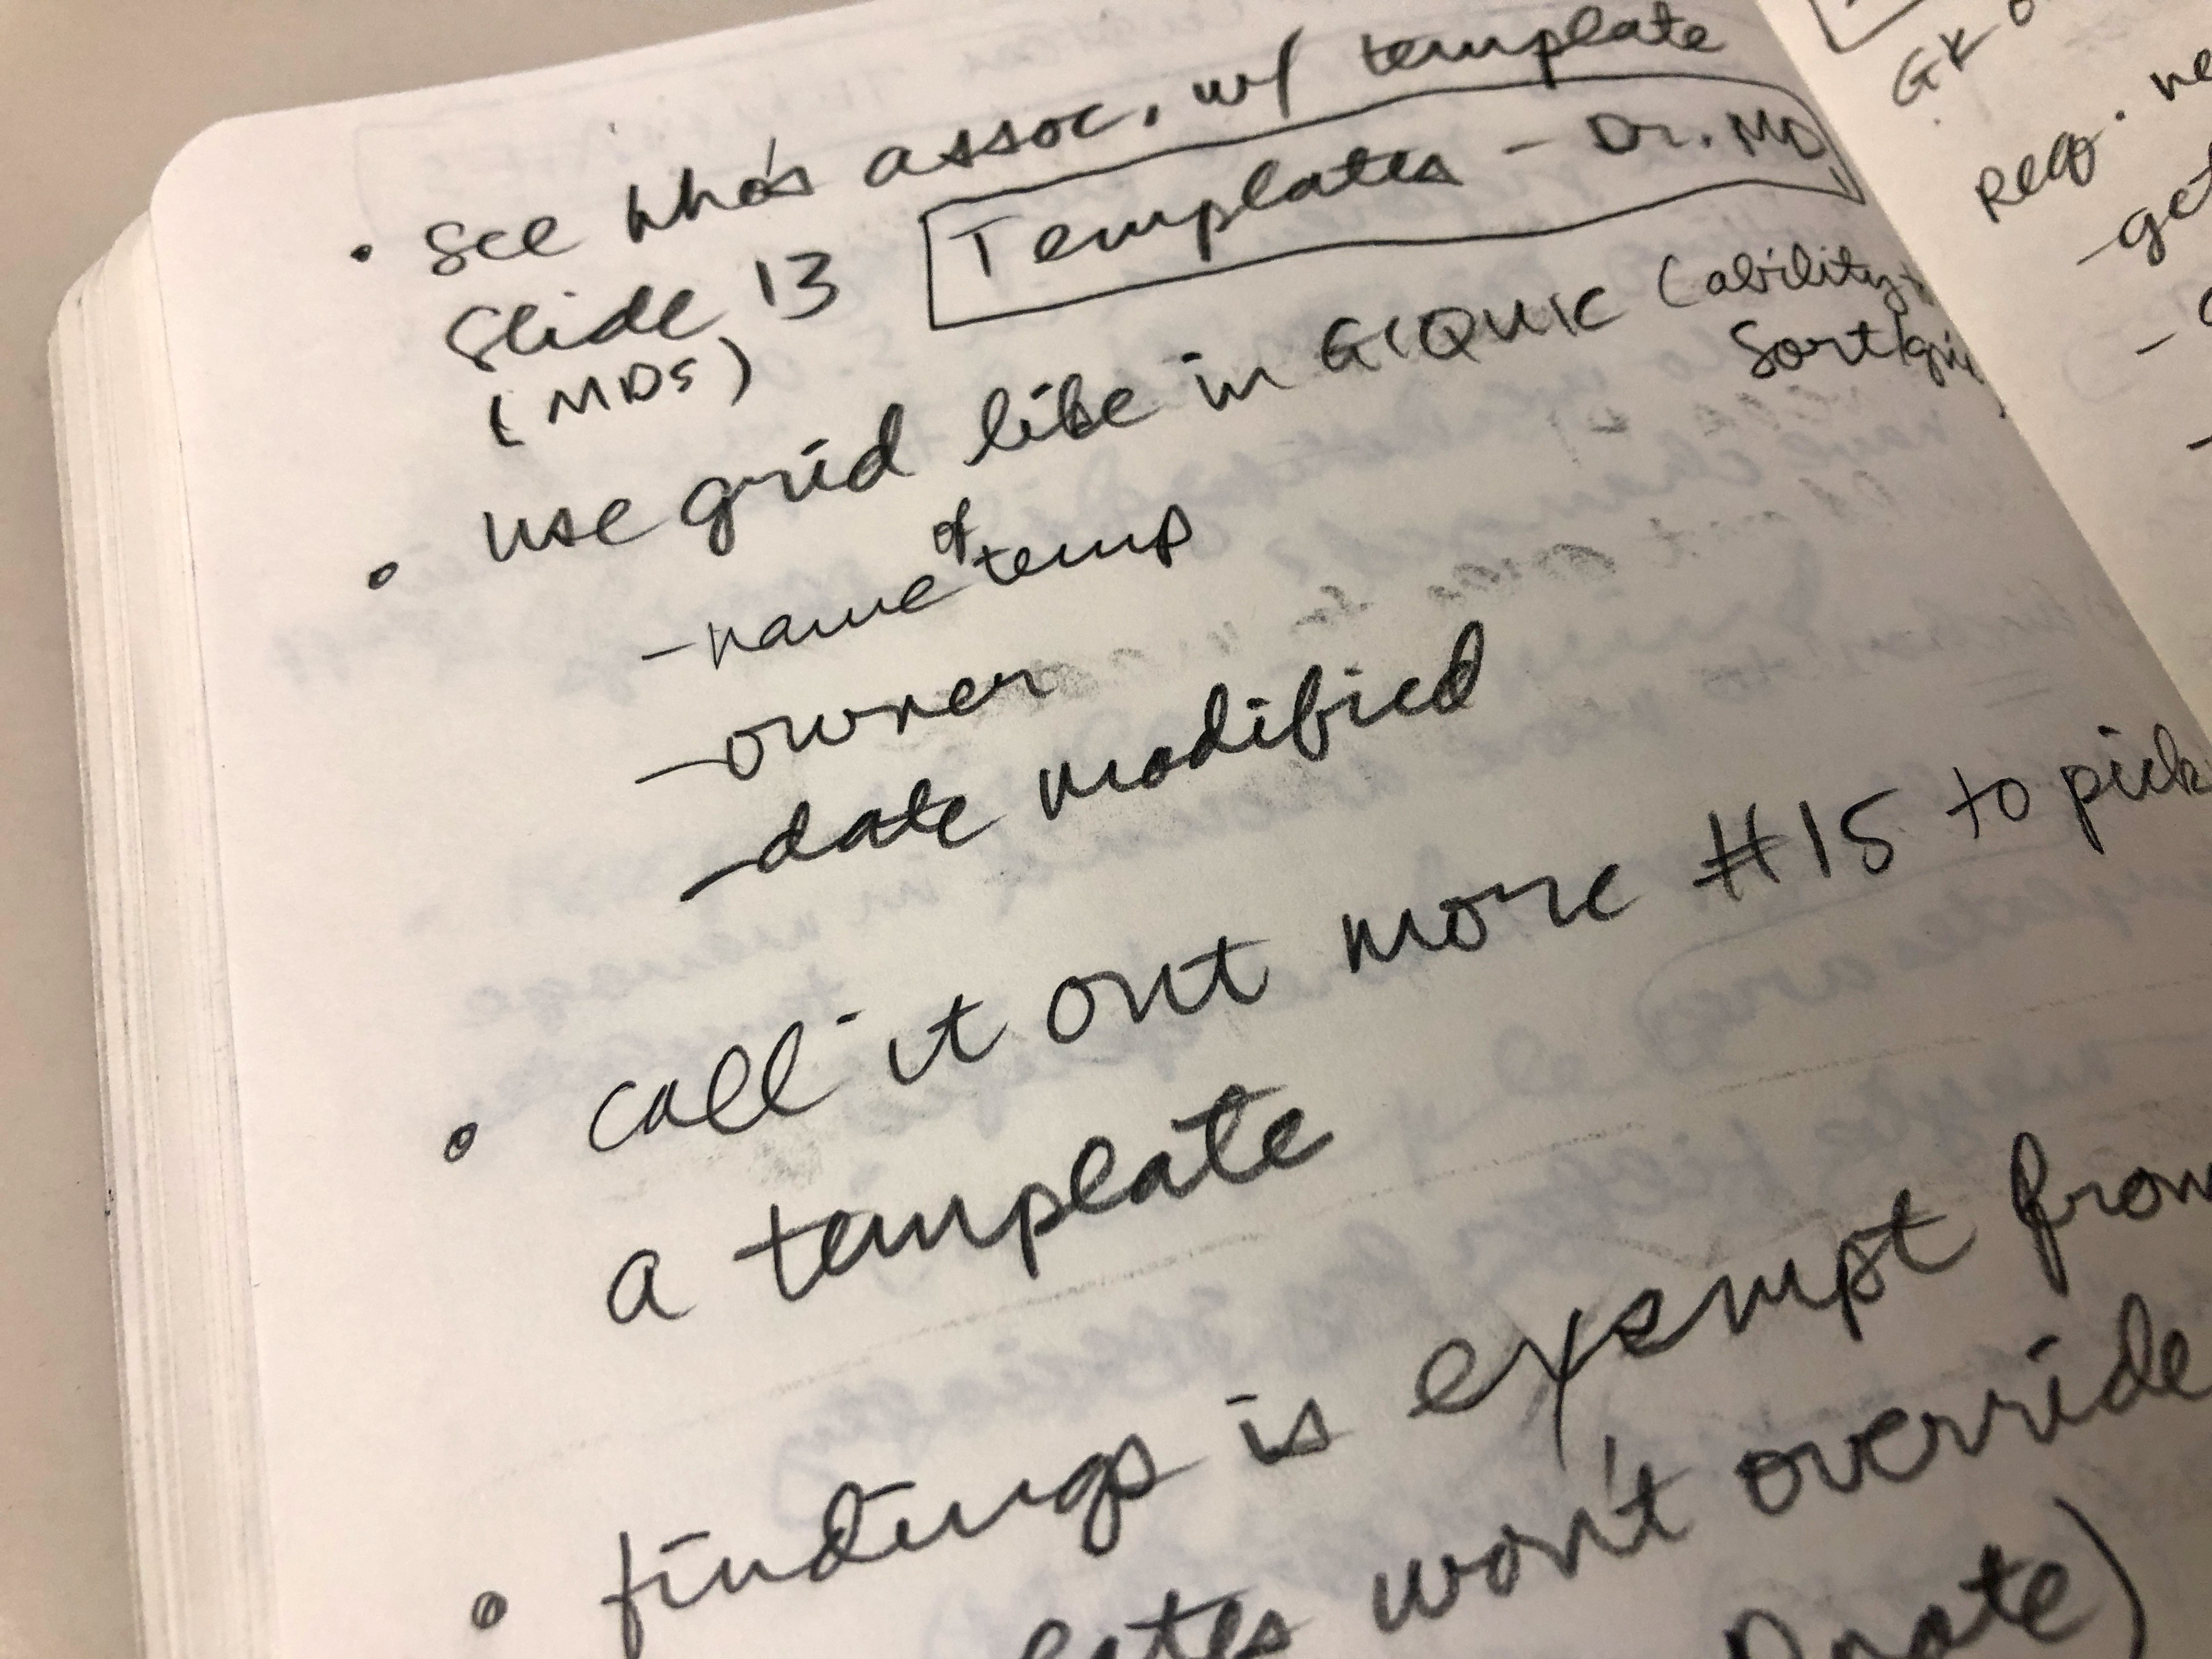 • See who's assoc. w/ template
Slide 13
(MDS)
Templates - Dr. MD
• use grid like in GIQUIC (ability
Sort/
- name of temp
- owner
- date modified
• call it out more #15 to pick
a template
• findings is exempt from
won't override
note)
GK
Req.
- get